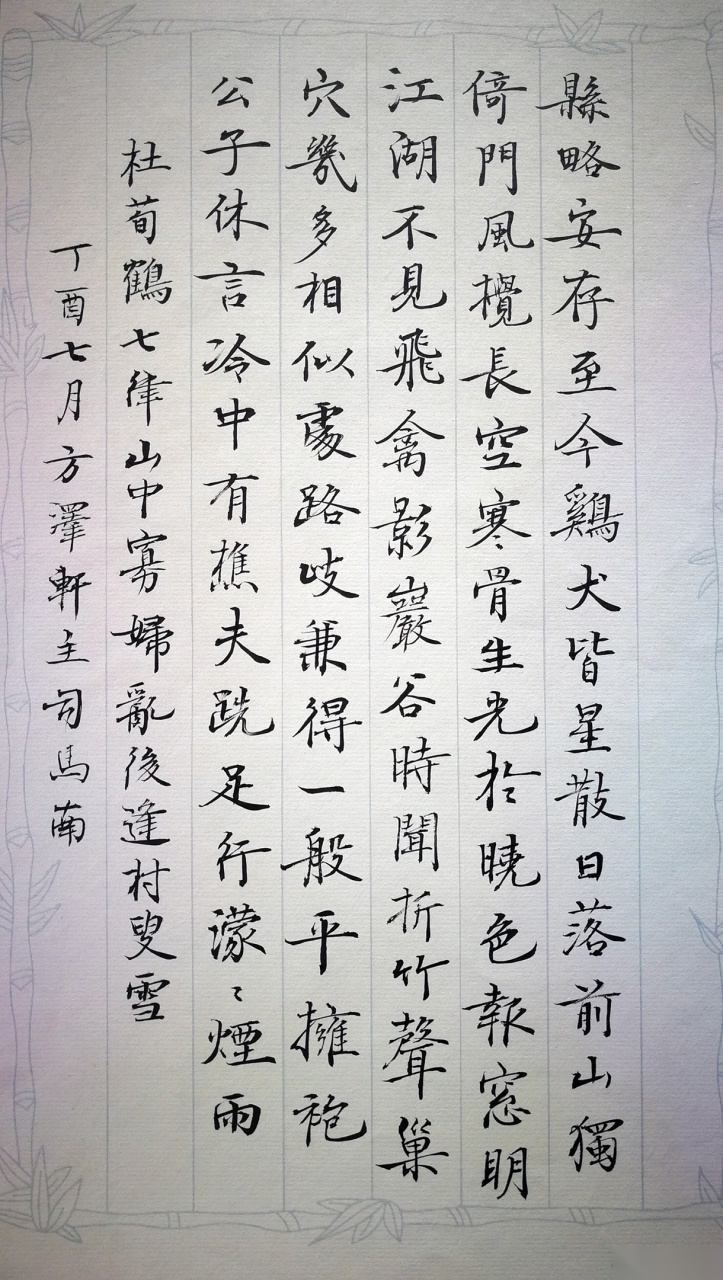 縣略安存至今鷄犬皆星散日落前山獨
倚門風攪長空寒骨生光於曉色報窓明
江湖不見飛禽影巖谷時聞折竹聲巢
穴幾多相似處路岐兼得一般平擁袍
公子休言冷中有樵夫跣足行濛〻煙雨
杜荀鶴七律山中寡婦亂後逢村叟雪
丁酉七月方澤軒主司馬南